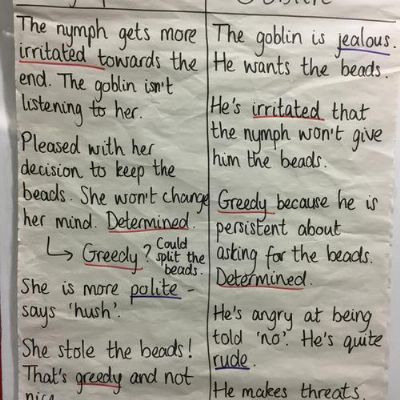 The nymph gets more
irritated towards the
end. The goblin isn't
listening to her.
Pleased with her
decision to keep the
beads. She won't change
her mind. Determined.
↳ Greedy? Could
split the
beads.
She is more polite -
says 'hush'.
She stole the beads!
That's greedy and not
The goblin is jealous.
He wants the beads.
He's irritated that
the nymph won't give
him the beads.
Greedy because he is
persistent about
asking for the beads.
Determined.
He's angry at being
told 'no'. He's quite
rude.
He makes threats.